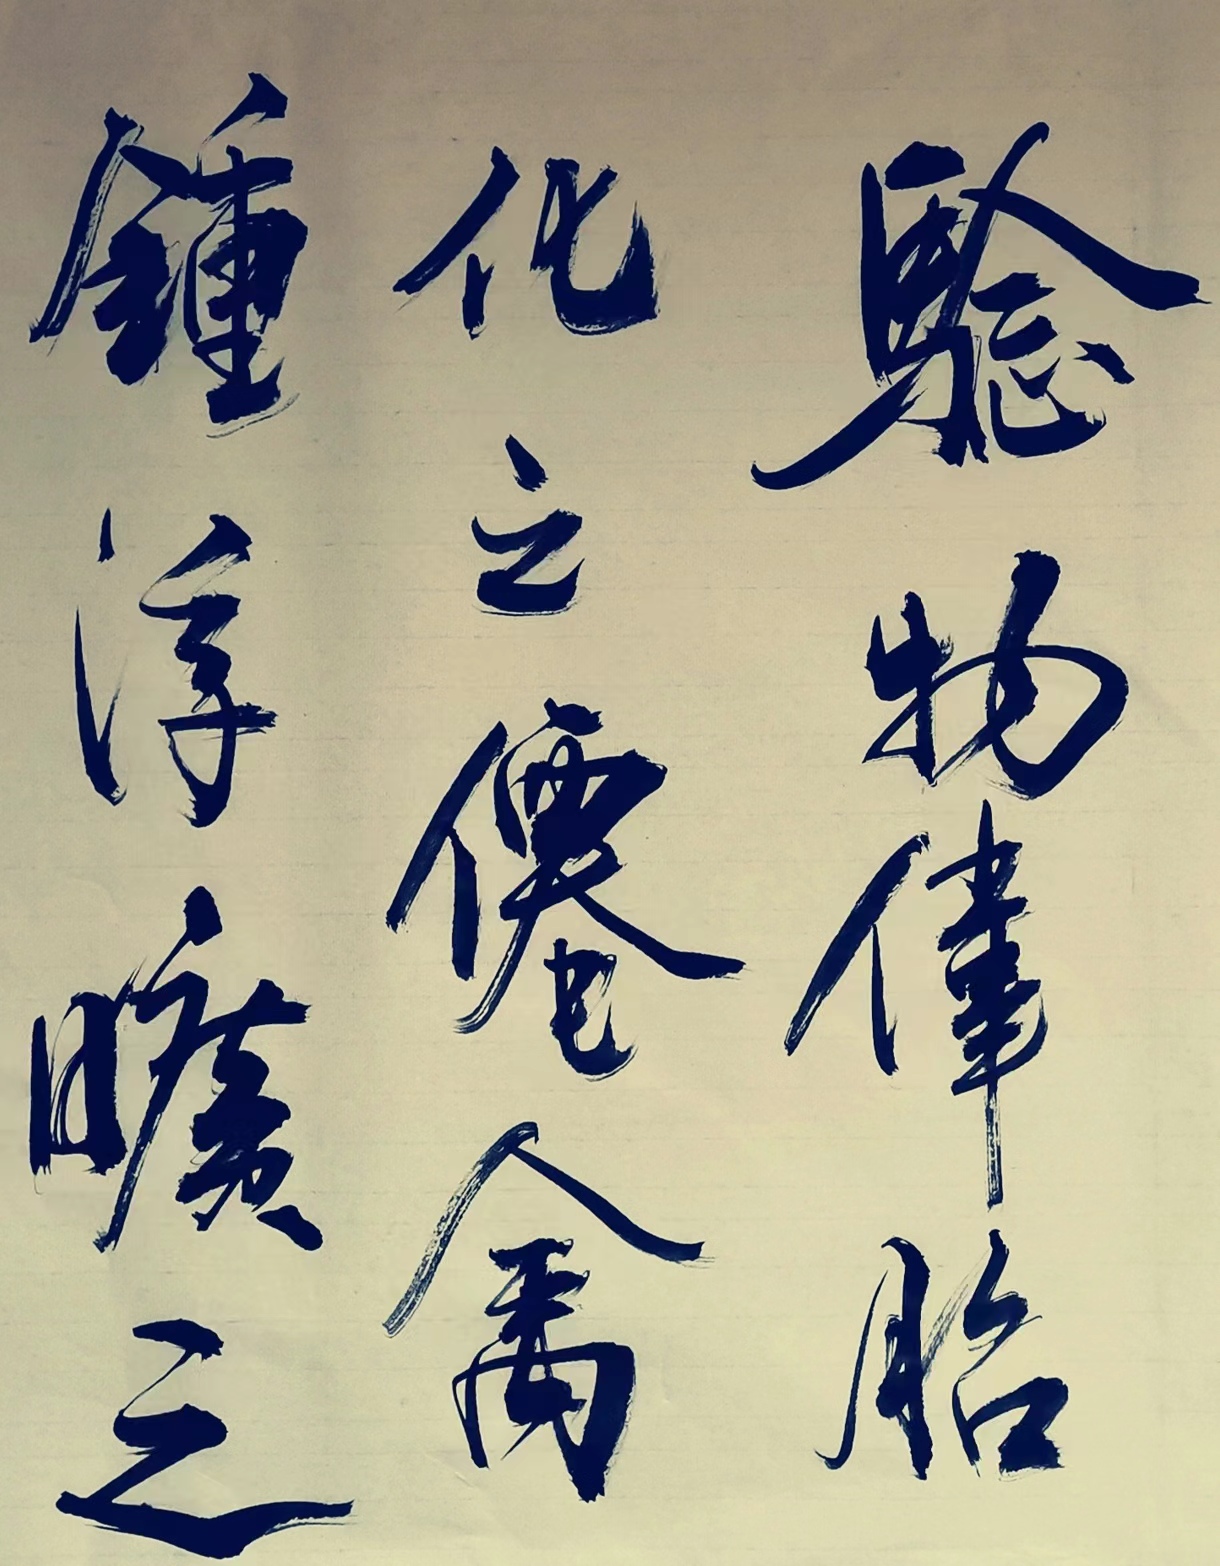 騐物偉胎
化之僊禽
鍾浮曠之